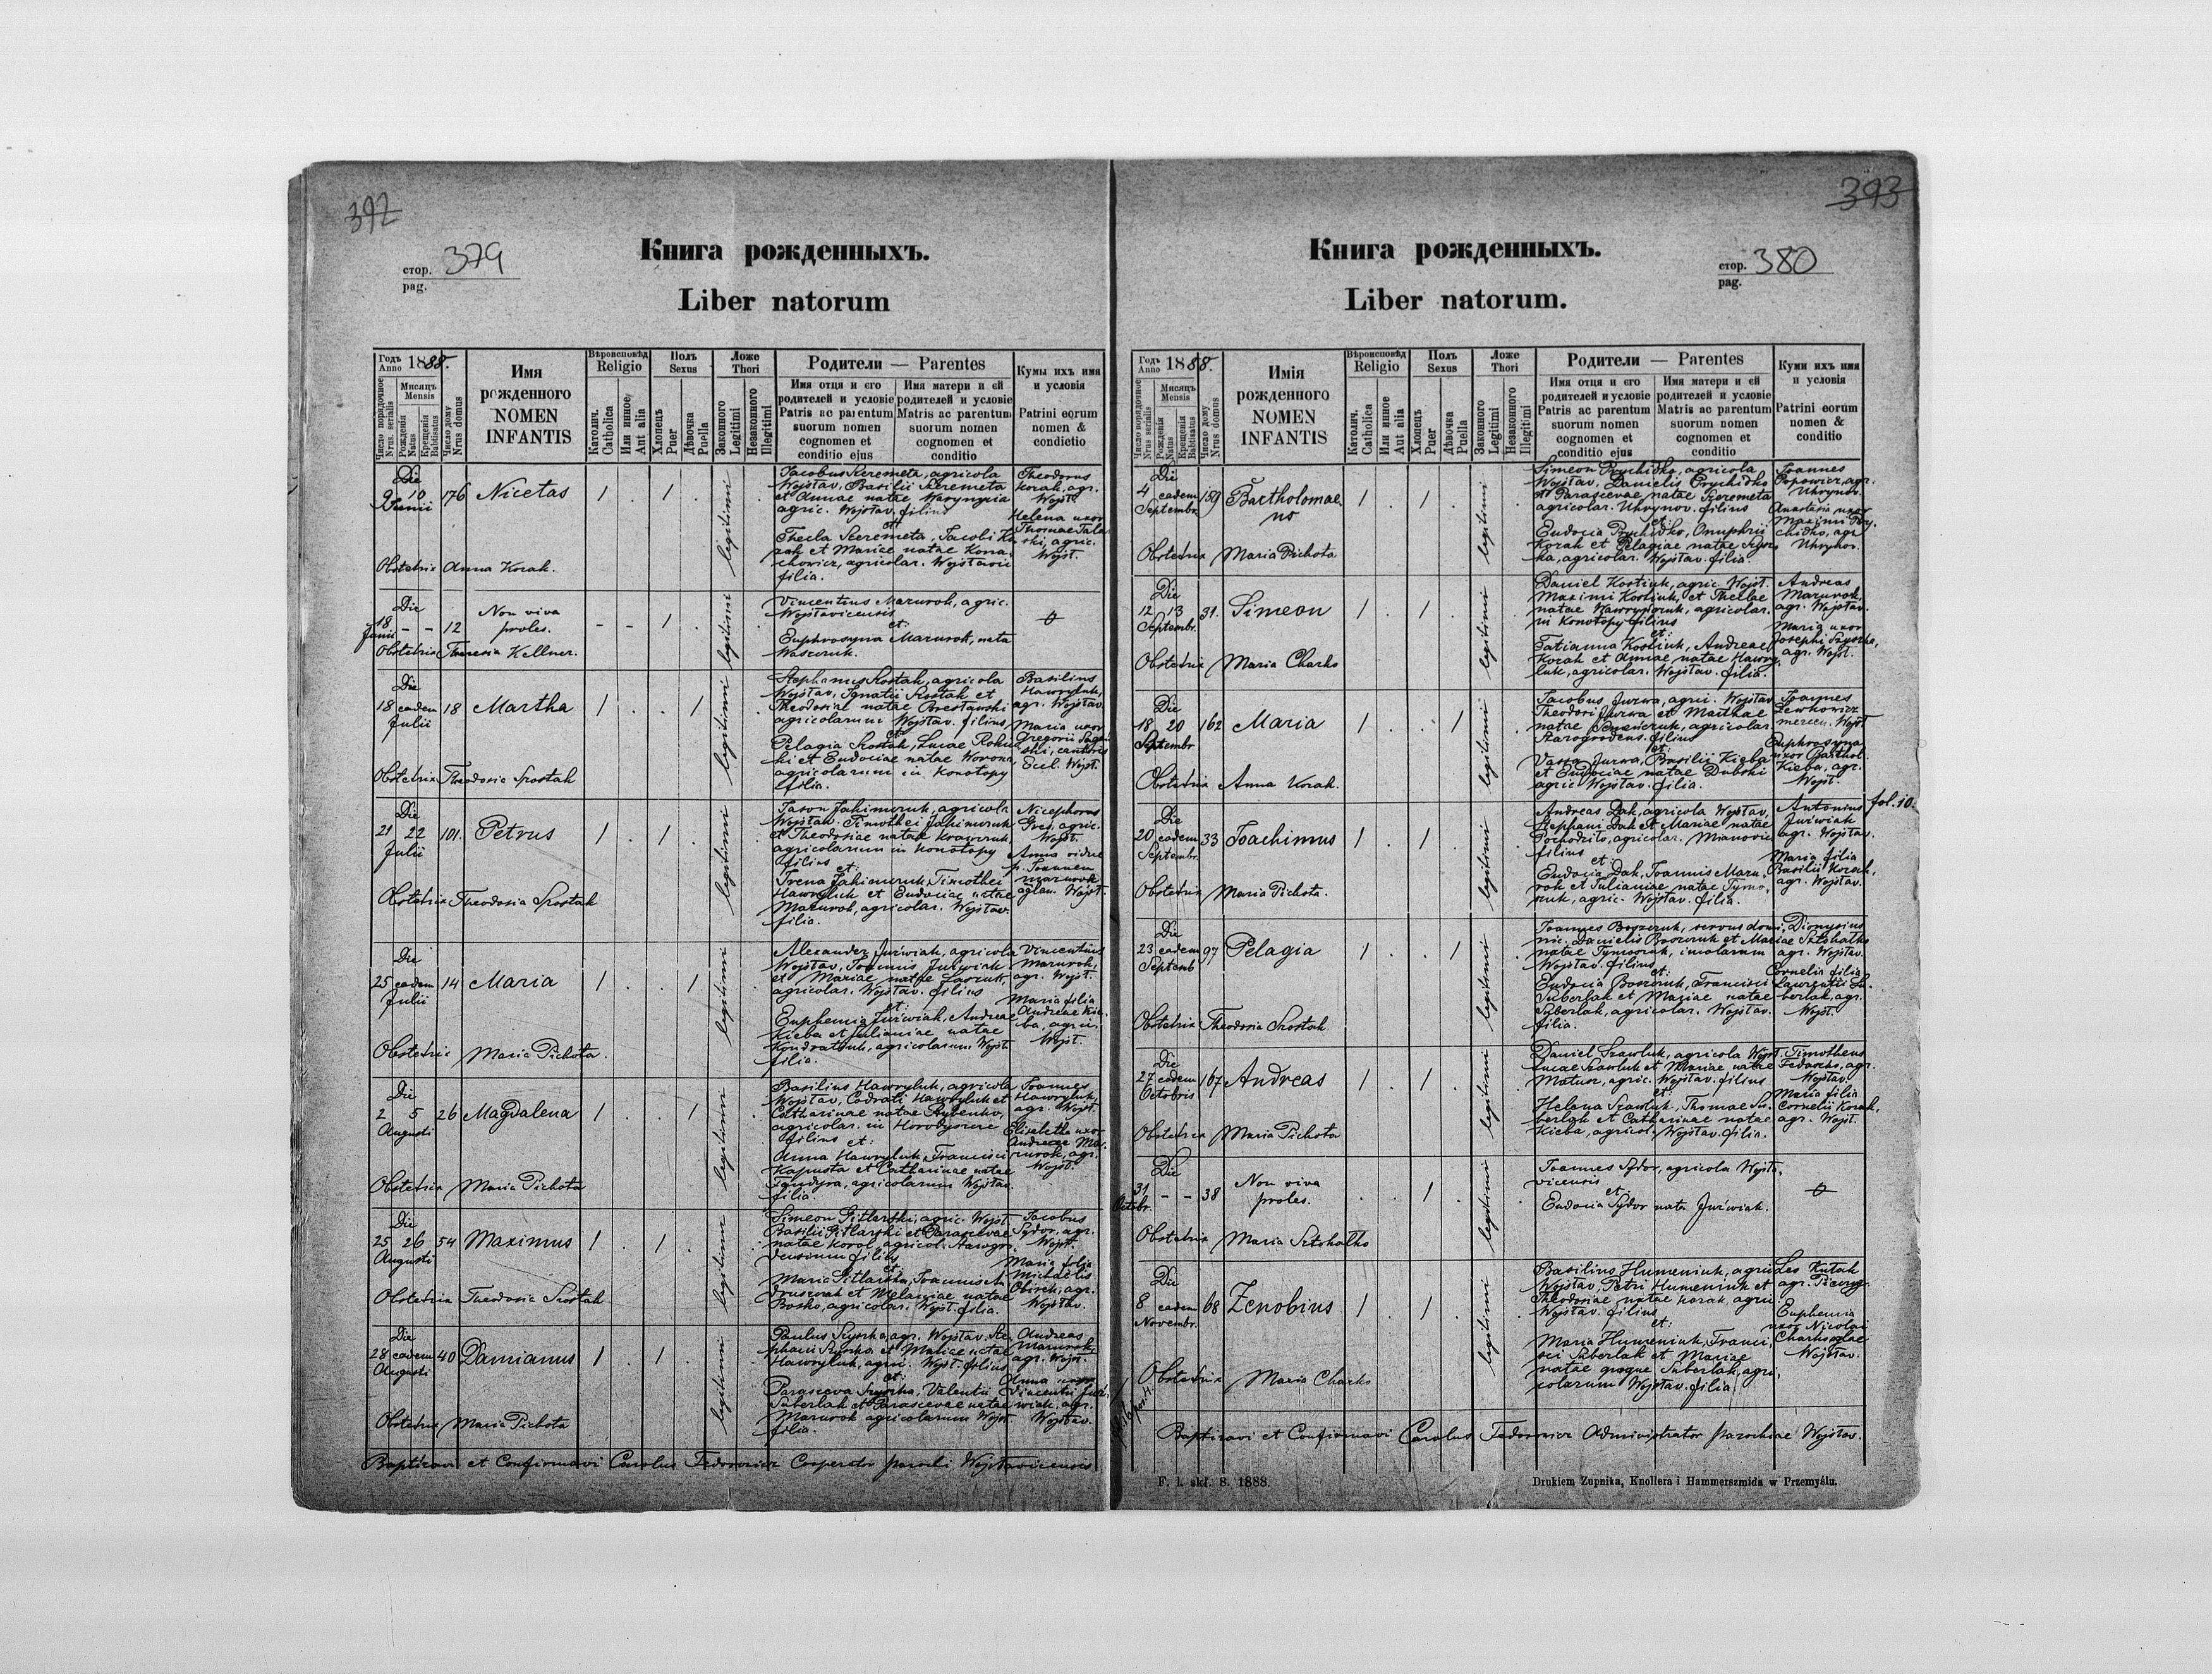 392
стор. 379
pag.
Книга рожденныхъ.
Liber natorum
Годъ 1888.
Anno
Число порядочное
Nrus serialis
Мисяць
Mensis
Рожденія
Natus
Крещенія
Babtisatus
Число дому
Nrus domus
Имя
рожденного
NOMEN
INFANTIS
Вѣроисповѣд
Religio
Католич.
Catholica
Или инное
Aut alia
Полъ
Sexus
Хлопець
Puer
Дѣвочка
Puella
Ложе
Thori
Законного
Legitimi
Незаконного
Illegitimi
Родители — Parentes
Имя отця и его
родителей и условіе
Patris ac parentum
suorum nomen
cognomen et
conditio ejus
Имя матери и ей
родителей и условіе
Matris ac parentum
suorum nomen
cognomen et
conditio
Кумы ихъ имя
и условія
Patrini eorum
nomen &
condictio
Die
9 10 176 Nicetas 1 . 1 . legitimi
Junii
Jacobus Szeremeta, agricola
Wojsław, Basilii Szeremeta
et Annae natae
agric. Wojsław. filius
et:
Thecla Szeremeta, Jacobi Ko
rak et Mariae natae Kona
chowicz, agricolar. Wojsławic
filia.
Theodorus
Korak, agr.
Wojsł.
Helena uxor
Thomae
agric.
Wojsł.
Obstetrix Anna Korak.
Die
18 - - 12 Non viva - - 1 . legitimi
Junii proles.
Vincentius Mazurok, agric.
Wojsławicensis
et:
Euphrosyna Mazurok, nata
Waszczuk.
Obstetrix Theresia Kellner.
Die
18 eadem 18 Martha 1 . . 1 legitimi
Julii
Stephanus Szostak, agricola
Wojsław, Ignatii Szostak et
Theodosiae natae
agricolarum Wojsław. filius
et
Pelagia Szostak, Lucae
et Eudociae natae Worona,
agricolarum in Konotopy
filia.
Basilius
Hawryluk,
agr. Wojsław.
Maria uxor
Gregorii
cantoris
Eccl. Wojsł.
Obstetrix Theodosia Szostak
Die
21 22 101. Petrus 1 . 1 . legitimi
Julii
Jason Jakimczuk, agricola
Wojsław. Timothei Jakimczuk
et Theodosiae natae Krawczuk,
agricolarum in Konotopy
filius
et:
Irena Jakimczuk, Timothei
Hawryluk et Eudociae natae
Mazurok, agricolar. Wojsław.
filia.
Nicephorus
agric.
Wojsł.
Anna vidua
p. Joannem
Mazurok
Wojsł.
Obstetrix Theodosia Szostak
Die
25 eadem 14 Maria 1 . . 1 legitimi
Julii
Alexander Jurwiak, agricola
Wojsław, Joannis Jurwiak
et Mariae natae
agricolar. Wojsław. filius
et:
Euphemia Jurwiak, Andreae
Kieba et Julianiae natae
Kondratiuk, agricolarum Wojsł.
filia.
Vincentius
Mazurok,
agr. Wojsł.
Maria filia
Andreae Kie-
ba, agric.
Wojsł.
Obstetrix Maria Pichota.
Die
2 5 26 Magdalena 1 . . 1 legitimi
Augusti
Basilius Hawryluk, agricola
Wojsław, Codrati Hawryluk et
Catharinae natae Rybenko,
agricolar. in Horodyszcze
filius et:
Anna Hawryluk, Francisci
Kapusta et Catharinae natae
agricolarum Wojsław.
filia.
Joannes
Hawryluk,
agr. Wojsł.
Elisabetha uxor
Andreae Ma-
zurok, agr.
Wojsł.
Obstetrix Maria Pichota
Die
25 26 54 Maximus 1 . 1 . legitimi
Augusti
Simeon Gitlarski, agric. Wojsł.
Basilii Gitlarski et Parascevae
natae Korol, agricol.
filius
et:
Maria Gitlarska, Joannis
et Melaniae natae
Bosko, agricolar. Wojsł. filia.
Jacobus
Sydor, agr.
Wojsł.
Maria filia
Michaelis
agr.
Wojsław.
Obstetrix Theodosia Szostak
Die
28 eadem 40 Damianus 1 . 1 . legitimi
Augusti
Paulus Szyszka, agr. Wojsław. Ste-
phani Szyszka et Mariae natae
Hawryluk, agric. Wojsł. filius
et:
Parasceva Szyszka, Valentii
Suberlak et Parascevae natae
Mazurok agricolarum Wojsł.
filia.
Andreas
Mazurok,
agr. Wojsł.
Anna uxor
Vincentii Jur-
wiak, agr.
Wojsław.
Obstetrix Maria Pichota
Baptizavi et Confirmavi Carolus Fedorowicz Cooperator parochi Wojsławicensis
393
стор. 380
pag.
Книга рожденныхъ.
Liber natorum.
Годъ 1888.
Anno
Число порядочное
Nrus serialis
Мисяць
Mensis
Рожденія
Natus
Крещенія
Babtisatus
Число дому
Nrus domus
Имія
рожденного
NOMEN
INFANTIS
Вѣроисповѣд
Religio
Католич.
Catholica
Или инное
Aut alia
Полъ
Sexus
Хлопець
Puer
Дѣвочка
Puella
Ложе
Thori
Законного
Legitimi
Незаконного
Illegitimi
Родители — Parentes
Имя отця и его
родителей и условіе
Patris ac parentum
suorum nomen
cognomen et
conditio ejus
Имя матери и ей
родителей и условіе
Matris ac parentum
suorum nomen
cognomen et
conditio
Куми ихъ имя
и условія
Patrini eorum
nomen &
conditio
Die
4 eadem 159 Bartholomae 1 . 1 . legitimi
Septembr. us
Simeon Prychidko, agricola
Wojsław, Danielis Prychidko
et Parascevae natae Szeremeta
agricolar. Uhrynov. filius
et:
Eudocia Prychidko, Onuphrii
Korak et Pelagiae natae
agricolar. Wojsław. filia.
Joannes
Popowicz, agr.
Uhrynov.
Anastasia uxor
Maximi Pry-
chidko, agr.
Uhrynov.
Obstetrix Maria Pichota
Die
12 13 31. Simeon 1 . 1 . legitimi
Septembr.
Daniel Kostiuk, agric. Wojsł.
Maximi Kostiuk, et Theclae
natae agricolar.
in Konotopy filius
et:
Tatianna Kostiuk, Andreae
Korak et Annae natae Hawry-
luk, agricolar. Wojsław. filia.
Andreas
Mazurok,
agr. Wojsław.
Maria uxor
Josephi Szyszka,
agr. Wojsł.
Obstetrix Maria Charko
Die
18 20 162 Maria 1 . . 1 legitimi
Septembr
Jacobus Jurwa, agric. Wojsław
Theodori Jurwa et Marthae
natae agricolar.
Starogrodens. filius
et:
Jurwa, Basilii Kieba
et Eudociae natae Dubski
agric. Wojsław. filia.
Joannes
Lewkowicz
Wojsł.
Euphrosyna
uxor Barthol.
Kieba, agr.
Wojsł.
Obstetrix Anna Korak.
Die
20 eadem 33 Joachimus 1 . 1 . legitimi
Septembr.
Andreas Dak, agricola Wojsław,
Stephani Dak et Mariae natae
agricolar.
filius
et:
Eudocia Dak, Joannis Mazu-
rok et Julianiae natae Tymo-
czuk, agric. Wojsław. filia.
Antonius
Jurwiak
agr. Wojsław.
Maria filia
Basilii Korak,
agr. Wojsław.
fol. 10.
Obstetrix Maria Pichota.
Die
23 eadem 97 Pelagia 1 . . 1 legitimi
Septemb
Joannes servus domi-
nic. Danielis et Mariae
natae Tymczuk, incolarum
Wojsław. filius
et:
Eudocia Francisci
Suberlak et Mariae natae
Suberlak, agricolar. Wojsław.
filia.
Dionysius
agr. Wojsław.
Cornelia filia
Laurentii Su-
berlak, agr.
Wojsł.
Obstetrix Theodosia Szostak.
Die
27 eadem 167 Andreas 1 . 1 . legitimi
Octobris
Daniel Szawluk, agricola Wojsł.
Lucae Szawluk et Mariae natae
agric. Wojsław. filius
et:
Helena Szawluk, Thomae Su-
berlak et Catharinae natae
Kieba, agricol. Wojsław. filia.
Timotheus
agr.
Wojsław.
Maria filia
Cornelii Korak,
agr. Wojsł.
Obstetrix Maria Pichota
Die
31 - - 38 Non viva . . 1 . legitimi
Octobr. proles.
Joannes Sydor, agricola Wojsła-
vicensis
et
Eudocia Sydor nata Jurwiak.
Obstetrix Maria
Die
8 eadem 68 Zenobius 1 . 1 . legitimi
Novembr.
Basilius Humeniuk, agric
Wojsław, Petri Humeniuk et
Theodosiae natae Korak, agric.
Wojsław. filius
et:
Maria Humeniuk, Franci-
sci Suberlak et Mariae
natae quoque Suberlak, agri-
colarum Wojsław. filia.
Les Kutah
agr.
Euphemia
uxor Nicolai
Charko
Wojsław.
Obstetrix Maria Charko
Baptizavi et Confirmavi Carolus Fedorowicz Administrator parochiae Wojsław.
F. l. skł. 8. 1888.
Drukiem Żupnika, Knollera i Hammerszmida w Przemyślu.